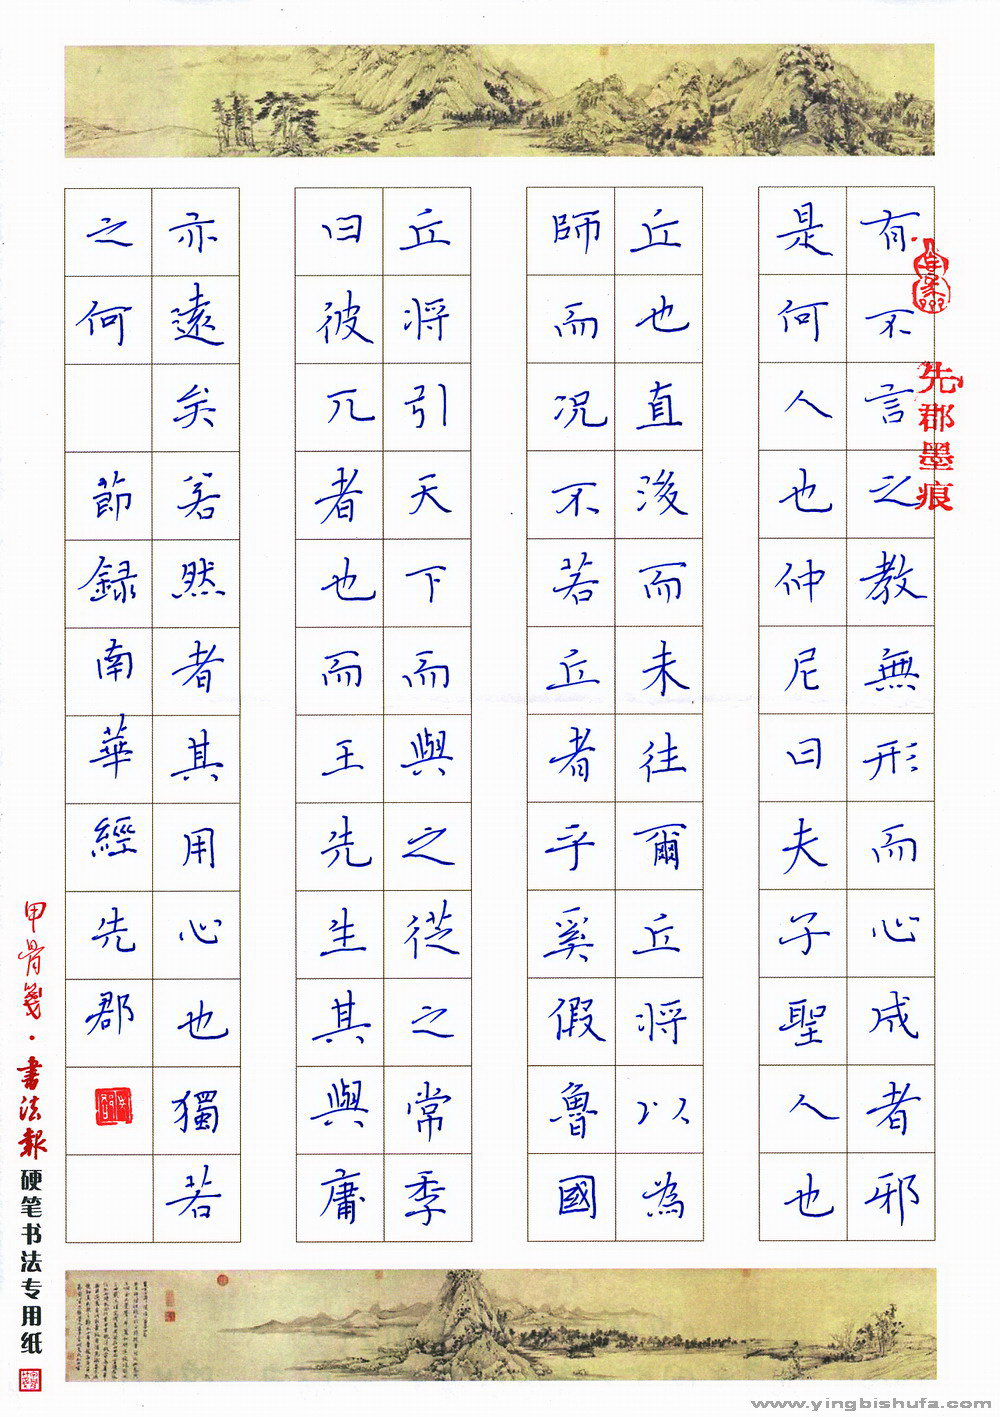 先郡墨痕
有不言之教無形而心成者邪
是何人也仲尼曰夫子聖人也
丘也直後而未往爾丘將以為
師而况不若丘者乎奚假魯國
丘將引天下而與之從之常季
曰彼兀者也而王先生其與庸
亦遠矣若然者其用心也獨若
之何 節録南華經先郡
甲骨箋·書法報硬笔书法专用纸
www.yingbishufa.com